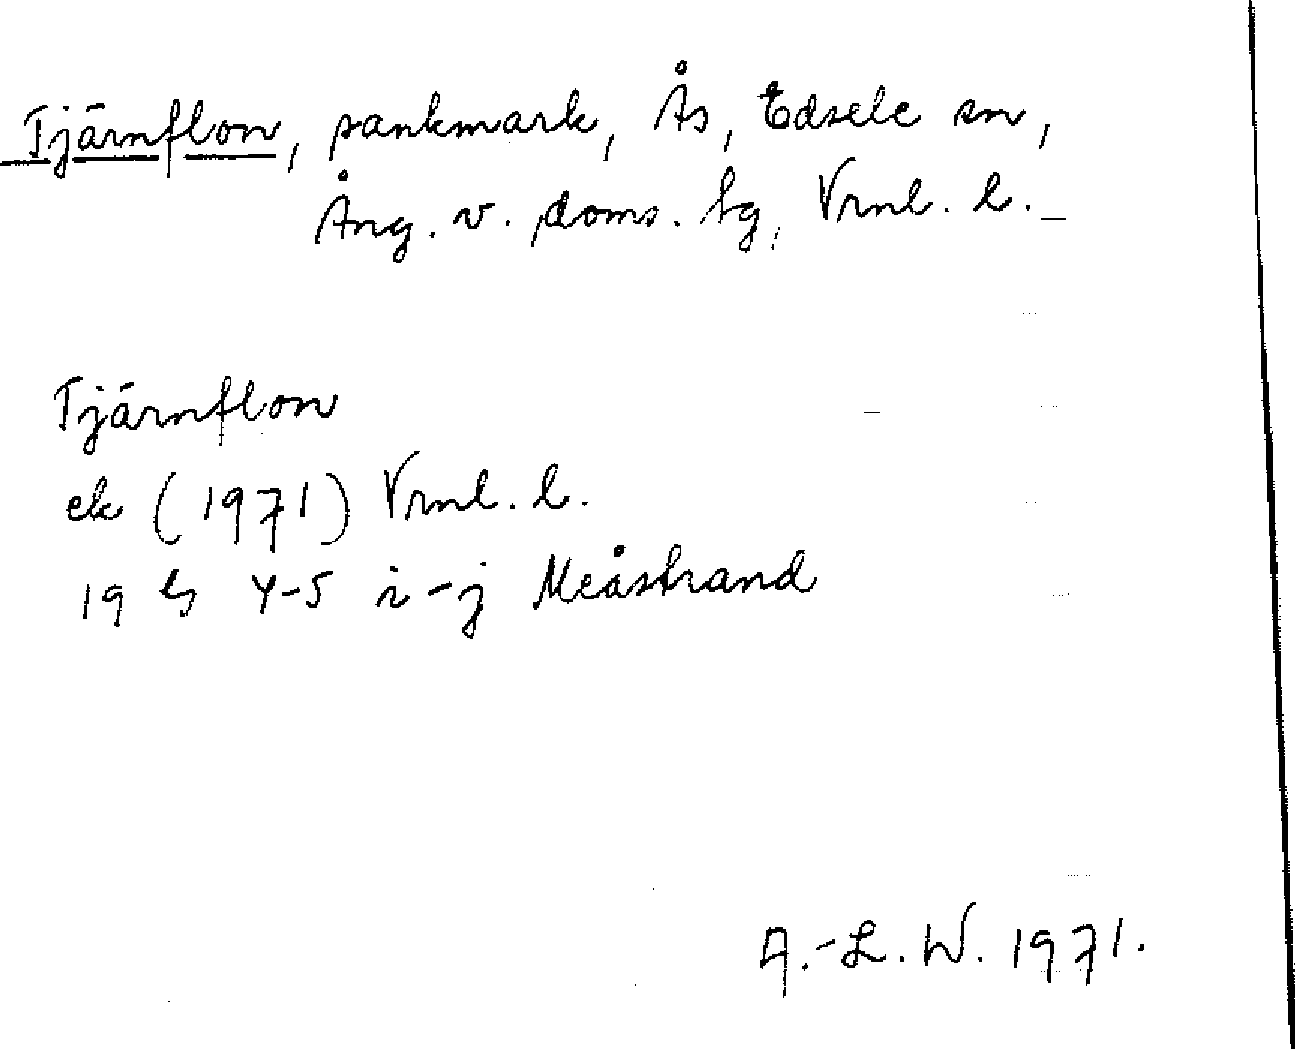 Tjärnflon, sankmark, Ås, Edsele sn,
Ång. v. doms. tg, Vrnl. l.
Tjärnflon
ek (1971) Vrnl. l.
19 G 4-5 i-j Meåstrand
A.-L. W. 1971.